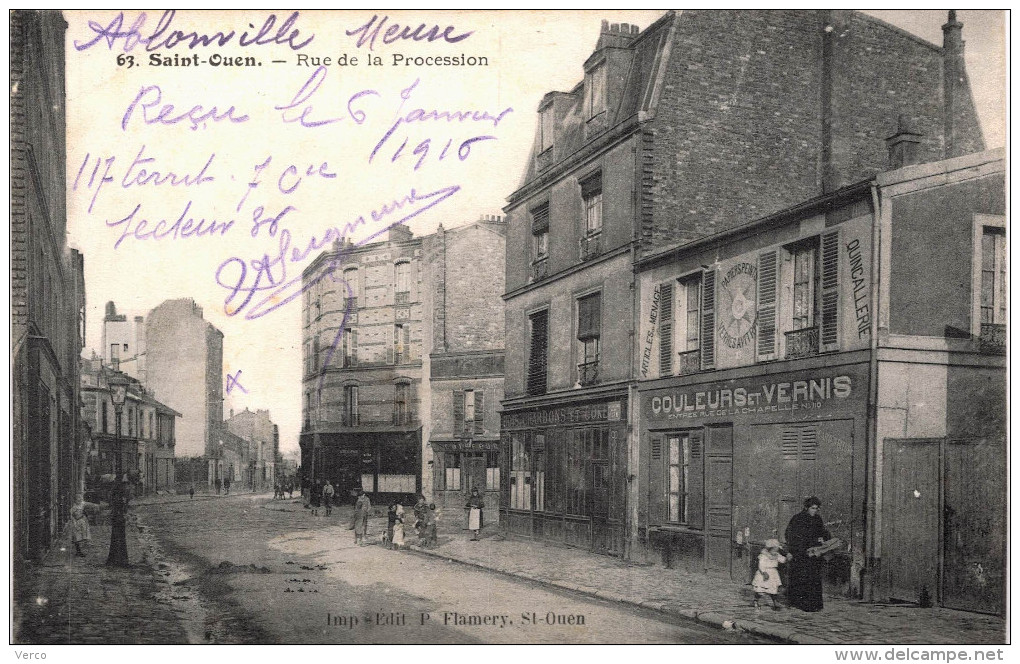 Ablonville Meuse
63. Saint-Ouen. — Rue de la Procession
Reçu le 6 Janvier
1916
117 territ. 7 Cie
secteur 36
A Seigneure
x
ARTICLES DE MENAGE
PAPIERS PEINTS
QUINCALLERIE
COULEURS ET VERNIS
ENTRÉE RUE DE LA CHAPELLE No 110
Imp-Edit P. Flamery, St-Ouen
© Verco
http://www.delcampe.net